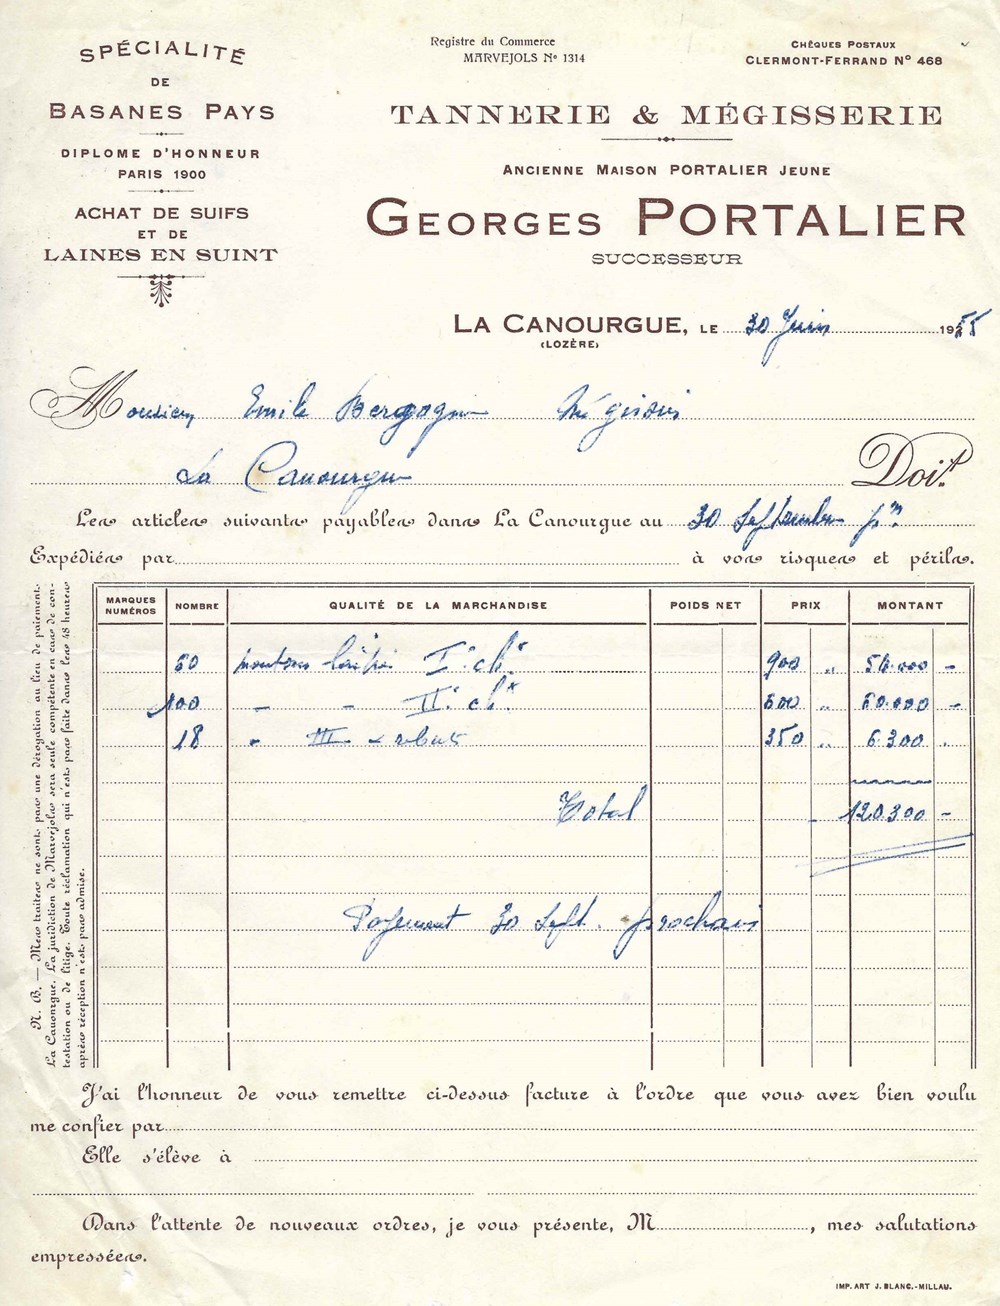 SPÉCIALITÉ
DE
BASANES PAYS
DIPLOME D'HONNEUR
PARIS 1900
ACHAT DE SUIFS
ET DE
LAINES EN SUINT
Registre du Commerce
MARVEJOLS No 1314
CHÈQUES POSTAUX
CLERMONT-FERRAND N° 468
TANNERIE & MÉGISSERIE
ANCIENNE MAISON PORTALIER JEUNE
GEORGES PORTALIER
SUCCESSEUR
LA CANOURGUE, LE 30 Juin 1955
(LOZÈRE)
Monsieur Emile Mégissier
La Canourgue Doit
Les articles suivants payables dans La Canourgue au 30 Septembre
Expédiés par à vos risques et périls.
N. B. — Mes traites ne sont pas une dérogation au lieu de paiement.
La Canourgue. La juridiction de Marvejols sera seule compétente en cas de con-
testation ou de litige. Toute réclamation qui n'est pas faite dans les 48 heures
après réception n'est pas admise.
MARQUES NUMÉROS NOMBRE QUALITÉ DE LA MARCHANDISE POIDS NET PRIX MONTANT
60 moutons I° ch. 900 „ 54.000 -
100 - - II° ch. 600 „ 60.000 -
18 - III 350 „ 6.300 .
Total 120.300 -
Payement 30 Sept. prochain
J'ai l'honneur de vous remettre ci-dessus facture à l'ordre que vous avez bien voulu
me confier par
Elle s'élève à
Dans l'attente de nouveaux ordres, je vous présente, M , mes salutations
empressées.
IMP. ART J. BLANC.-MILLAU.